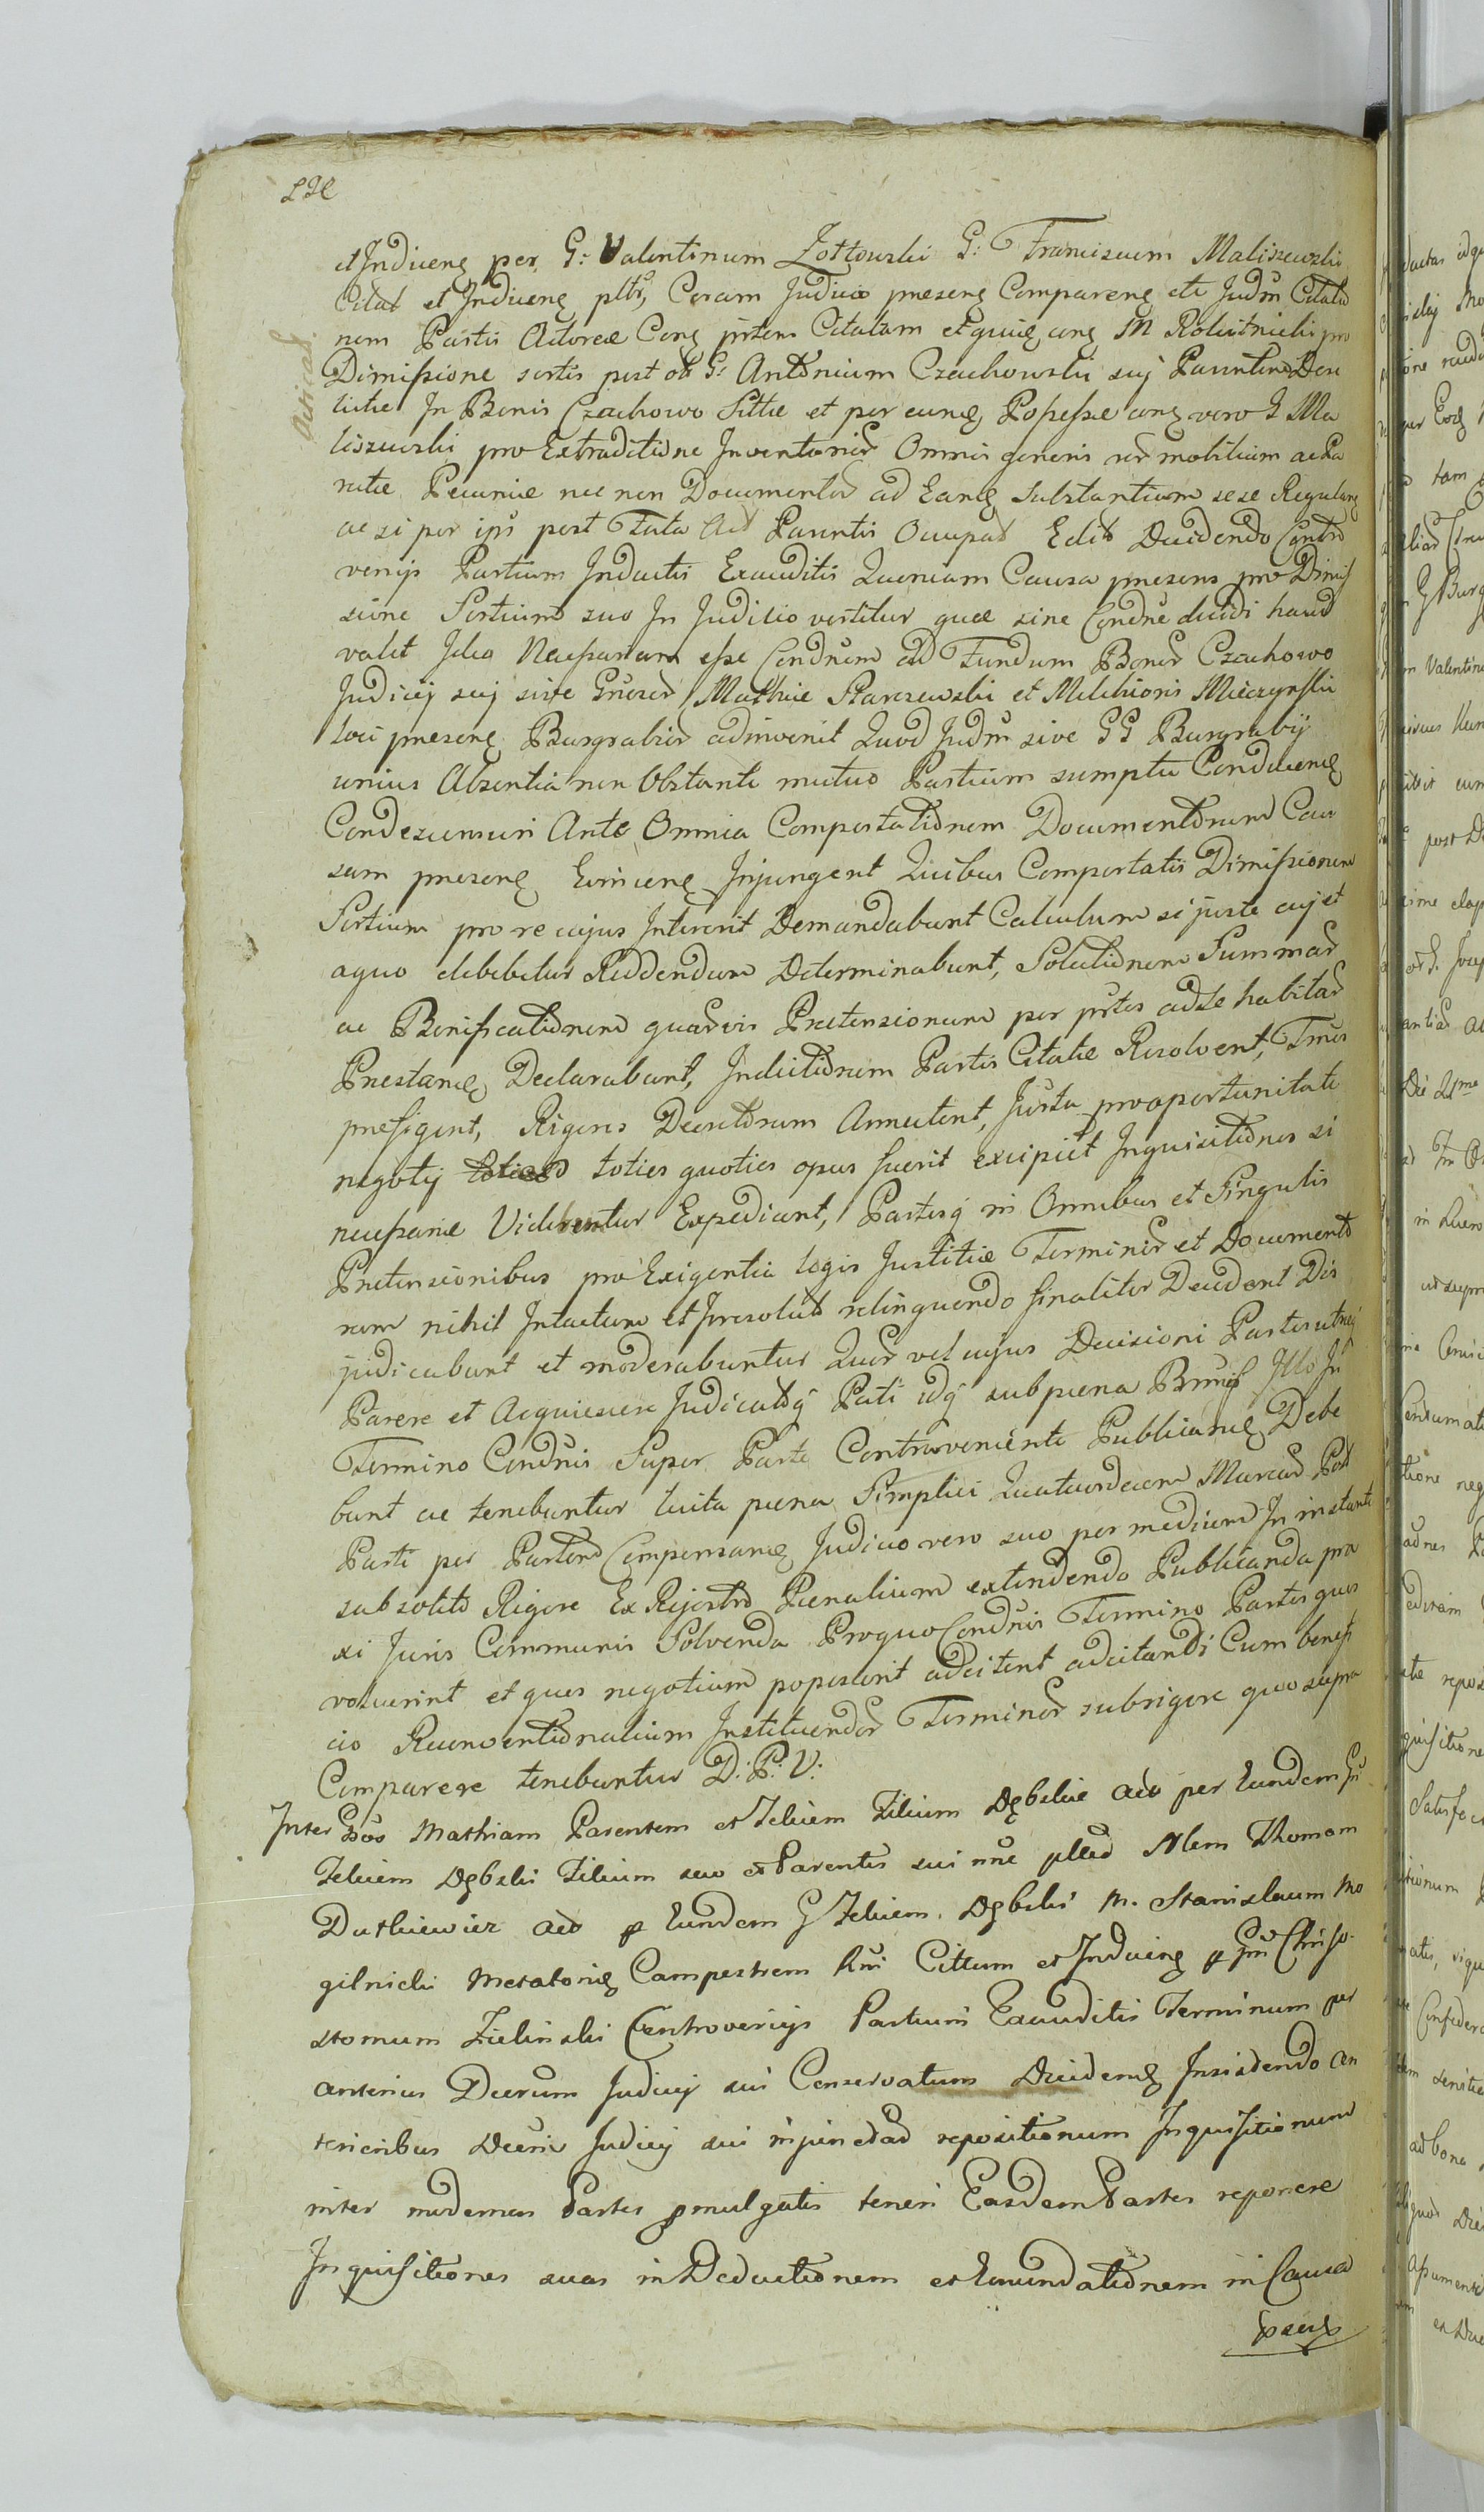 et Inducen per G: Valentinum Zołtowski G: Franciscum Maliszewski
Citat et Inducen pltr, Coram Judicio presen Comparen ete Judm Citatio
nem Partis Actoreæ Con prtem Citatam et quiden con M Rokitnicki pro
Dimissione sortis post ol: G: Antonium Czachowski suj Parentem Dere
lictæ In Bonis Czachowo Sittæ et per eund Possessæ con vero G Ma
liszewski pro Extraditione Inventarior Omnis generis rer mobilium ac Pa
ratæ Pecuniæ nec non Documentor ad Eand substantiam sese Regulan
ac si per ipsi post Fata Parentis Occupat Edit Decidendo Contro
versijs Partium Inductis Exauditis Quoniam Causa presens pro Dimis
sione Sortium suo In Judicio vertitur quæ sine Condne decidi haud
valet Ideo Necessariam esse Condnem ad Fundum Bonor Czachowo
Judicij suj sive Gnror Mathiæ Starczewski et Melchioris Mieczynski
loci presen Burgrabior adinvenit Quod Judm sive GG Burgrabij
unius Absentia non Obstante mutuo Partium sumptu Conducen
Condescensuri Ante Omnia Comportationem Documentorum Cau
sam presen Evincen Injungent Quibus Comportatis Dimissionem
Sortium pro re cujus Intererit Demandabunt Calculum si juste cuj et
a quo debebitur Reddendum Determinabunt, Solutionem Summar
ac Bonificationem quarvis Pretensionum per prtes ad se habitar
Prestand Declarabunt, Inducitionem Partis Citatæ Resolvent, Tmos
presigent, Rigores Decretorum Annectent, Juxta pro opportunitate
negotij toties quoties opus fuerit excipiet Inquisitiones si
necessariæ Viderentur Expedient, Partesq in Omnibus et Singulis
Pretensionibus pro Exigentia legis Justitiæ Terminor et Documento
rum nihil Intactum et Irresolut relinquendo finaliter Decident Dis
judicabunt et moderabuntur Quor vel cujus Decisioni Partes utræq
Parere et Acquiescere Judicatoq Pati idq sub pœna Bnnis Illo In
Termino Condnis Super Parte Contraveniente Publicand Debe
bunt ac tenebuntur luita pœna Simplici Quatuordecem Marcar Port
Parti per Partem Compensand Judicio vero suo per medium In instanti
sub solito Rigore Ex Rejestro Pœnalium extendendo Publicanda pra
xi Juris Communis Solvenda Pro quo Condnis Termino Partes quos
voluerint et quos negotium poposcerit adcitent adcitandi Cum benefi
cio Reconventionalium Instituendor Terminor sub rigore quo supra
Comparere tenebuntur D: P: V:
Inter Gsos Mathiam Parentem et Felicem Filium Dębskie aeo per Eundem Gn
Felicem Dębski Filium suo et Parentis sui nne plled Nlem Thomam
Dutkiewicz aeo p Eundem G Felicem Dębski M. Stanislaum Mo
gilnicki Metatorem Campestrem Rni Cittum et Inducing p Gn Chriso
stomum Zielinski Controversijs Partium Exauditis Terminum per
anterius Decrum Judicij sui Conservatum Decidend Insistendo an
terioribus Decris Judicij sui repositionum Inquisitionum
inter modernas Partes pmulgatis teneri Easdem Partes reponere
Inquisitiones suas in Deductionem et Emundationem in Causa